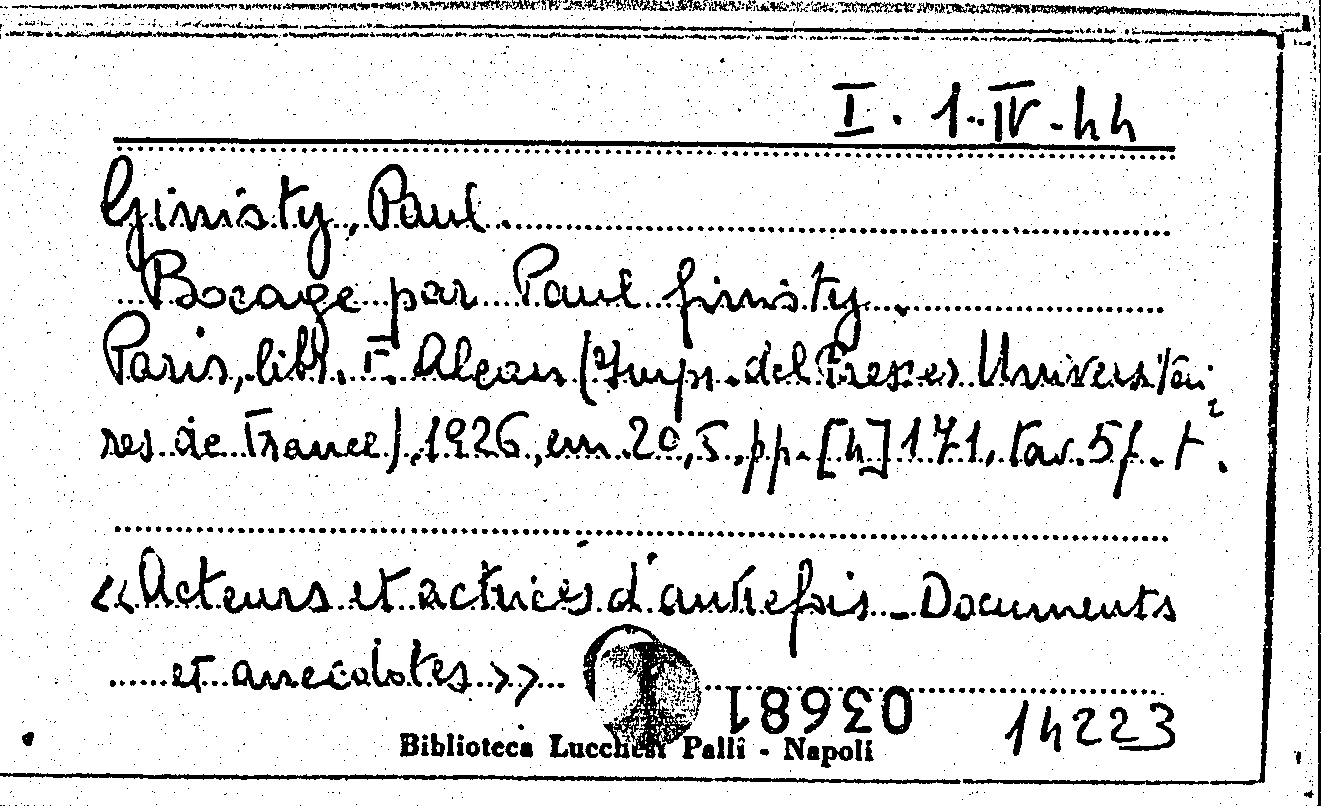 I. 1. IV - 44
Ginisty, Paul.
Bocage par Paul Ginisty.
Paris, libr. F. Alcan (Imp. des Presses Universitai
res de France), 1926, cm. 20,5, pp. [4] 171, tav. 5 f. t².
«Acteurs et actrices d'autrefois - Documents
et anecdotes»
03681
14223
Biblioteca Lucchesi Palli - Napoli